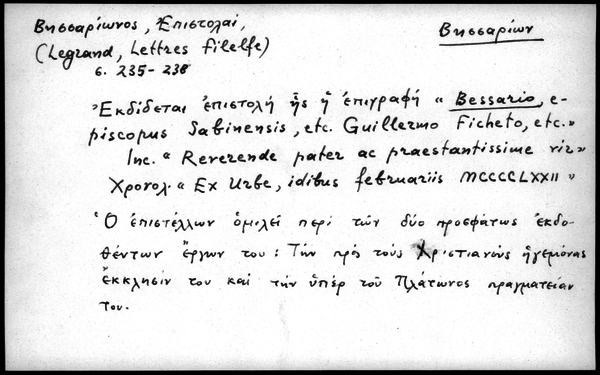 Βησσαρίωνος, Ἐπιστολαί,
Βησσαρίων
(Legrand, Lettres Filelfe)
σ. 235-238
Ἐκδίδεται ἐπιστολή ἧς ἡ ἐπιγραφή « Bessario, e-
piscopus Sabinensis, etc. Guillermo Ficheto, etc.»
Inc. « Reverende pater ac praestantissime vir»
Χρονολ. « Ex Urbe, idibus februariis MCCCCLXXII »
Ὁ ἐπιστέλλων ὁμιλεῖ περί τῶν δύο προσφάτως ἐκδο-
θέντων ἔργων του : Τήν πρός τούς Χριστιανούς ἡγεμόνας
ἔκκλησίν του καί τήν ὑπέρ τοῦ Πλάτωνος πραγματείαν
του.